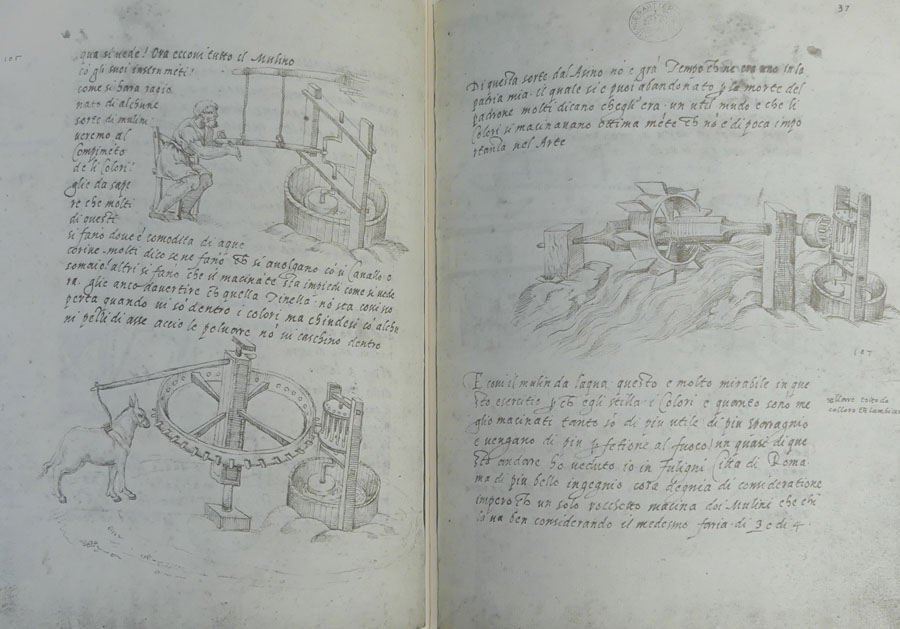 qua si vede! Ora eccovi tutto il Mulino
cō gli suoi instrumēti!
come si hara ragio
nato di alchune
sorte di mulini
veremo al
Compimēto
de li Colori!
glie da sape
re che molti
di questi
si fano dove è comodita di aque
corine molti dico se ne fano si avolgano cō un Cavallo o
somaio! altri si fano che il macināte sta impiedi come si vede
ra. glie anco davertire quella Tinella nō sta cosi sco
perta quando vi sō dentro i colori ma chiudesi cō alchu
ni pezzi di asse acciò le polvare nō vi caschino dentro
105
37
Di questa sorte dal Asino nō è grā Tempo ne era uno in la
patria mia il quale si è puoi abandonato la morte del
padrone molti dicano chegli era un util mudo e che li
Colori si macinavano ottima mēte nō è di poca impo
rtanza nel Arte
107
Ecovi il mulin da laqua questo e molto mirabile in que
sto esercitio egli stilla i Colori e quanto sonō me
glio macinati tanto sō di piu utile di piu sporagnio
e vengano di piu fetione al fuoco un quasi di que
sto andare ho veduto io in Fuligni Citta di Roma
ma di piu bello ingegnio cosa degnia di consideratione
impero un solo rocchetto macina doi Mulini che chi
la va ben considerando il medesmo faria di 3 e di 4